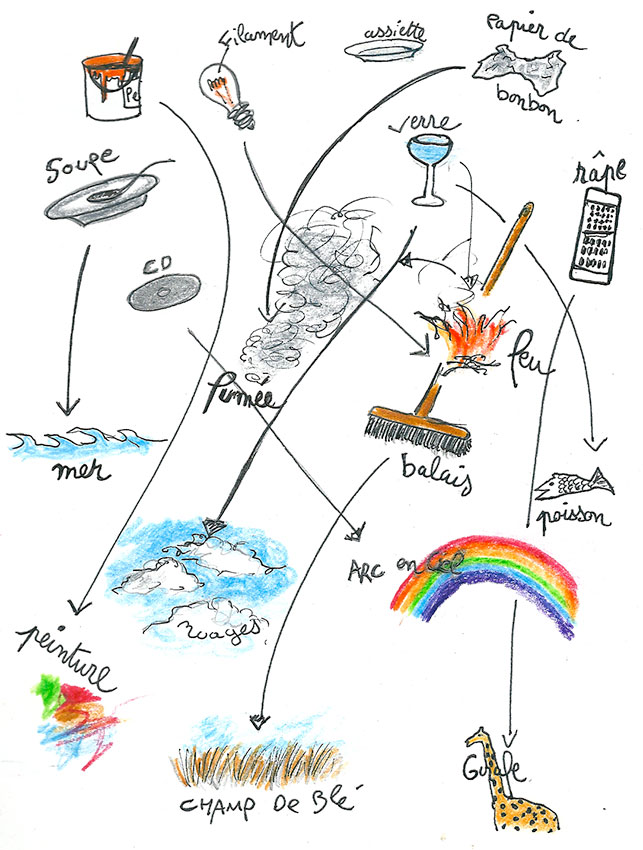 Filament
assiette
Papier de
bonbon
Pe
Verre
Soupe
râpe
CD
fumée
feu
balais
mer
poisson
ARC en Ciel
nuages
peinture
Girafe
CHAMP De Blé